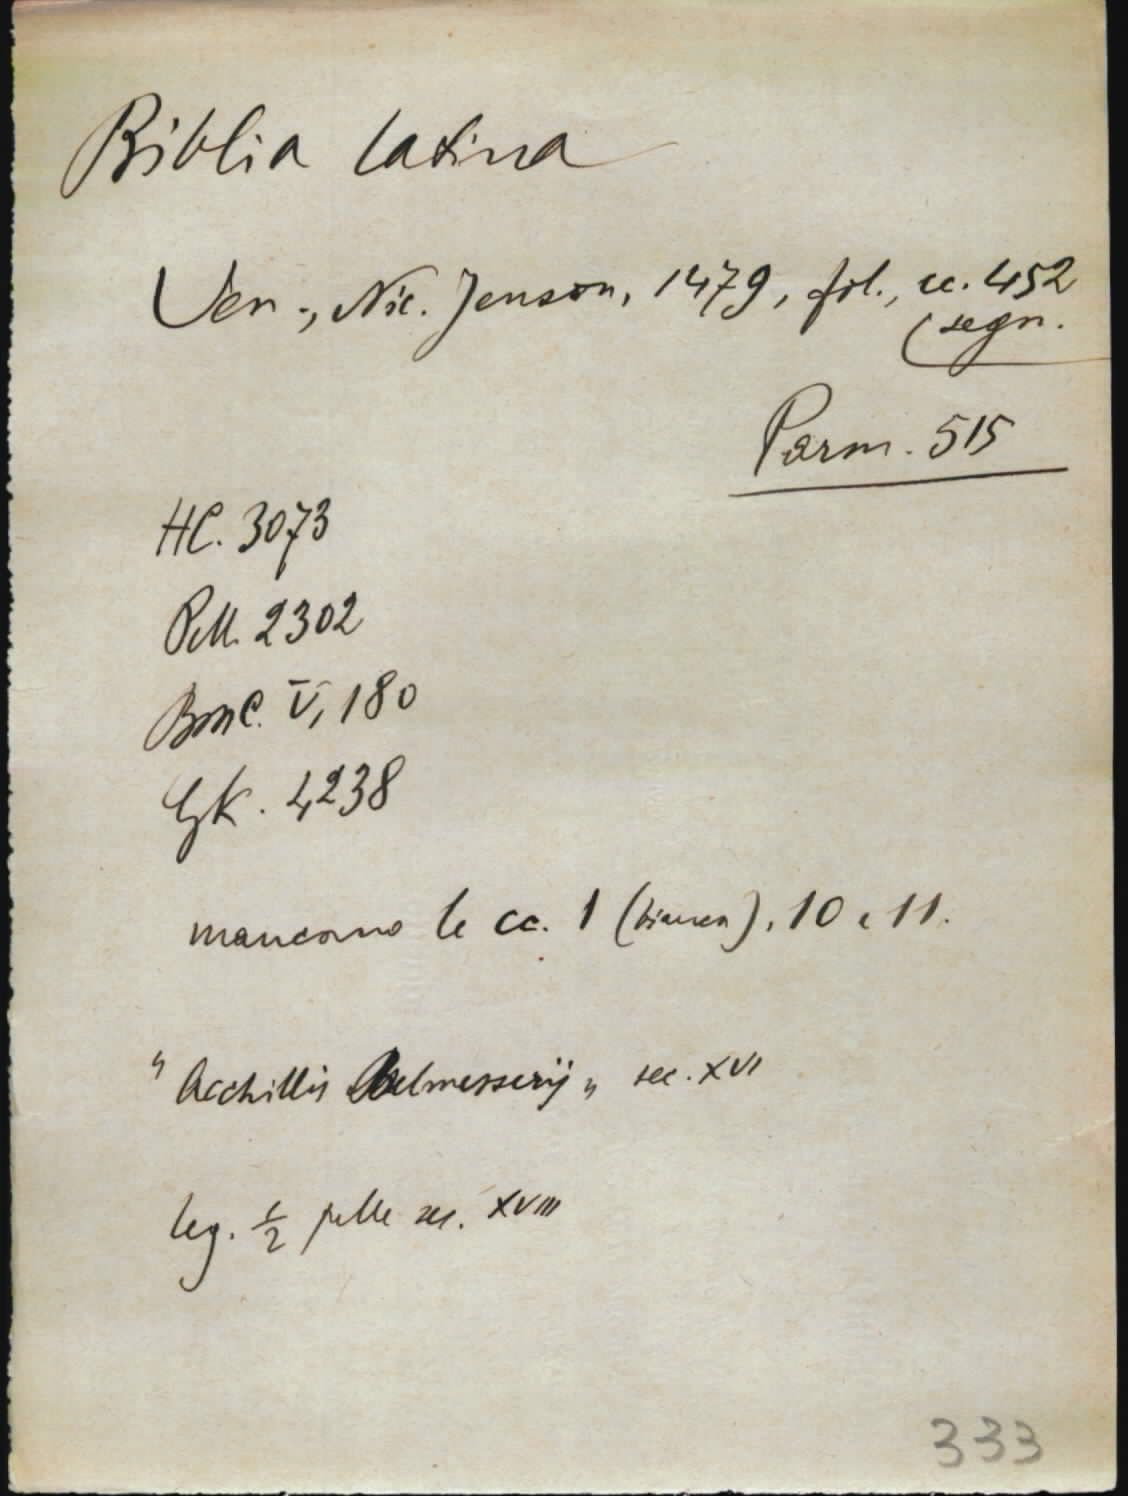 Biblia latina
Ven., Nic. Jenson, 1479, fol., cc. 452
(segn.
Parm. 515
HC. 3073
Pell. 2302
BMC. V, 180
GK. 4238
mancano le cc. 1 (bianca), 10 e 11.
"Acchillis Belmesserij" sec. XVI
leg. 1/2 pelle sec. XVIII
333